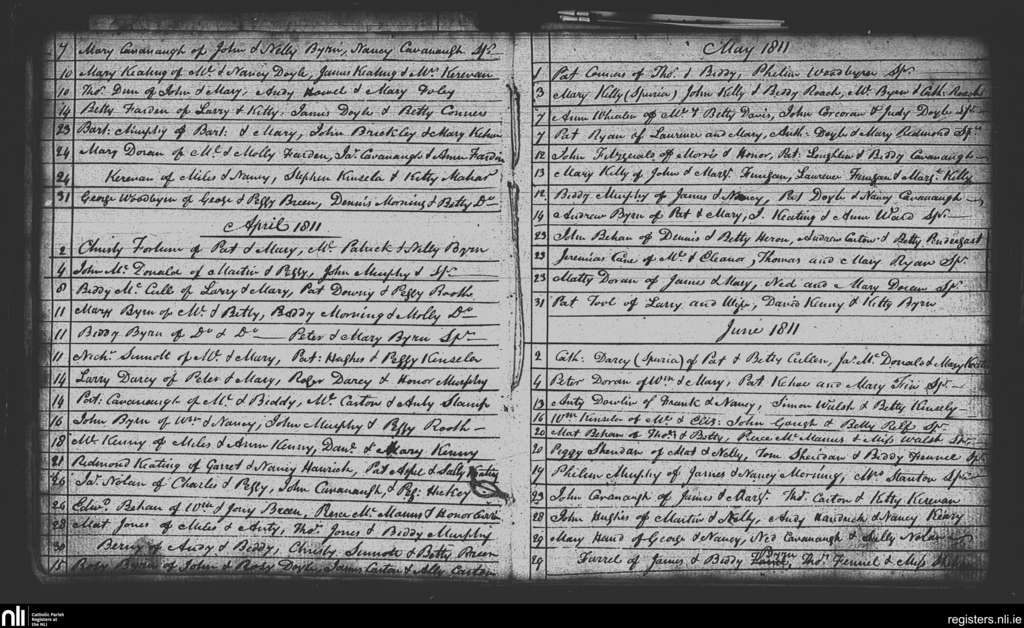 7 Mary Cavanaugh of John & Nelly Byrn, Nancy Cavanaugh Spr.
10 Mary Keating of Mc. & Nancy Doyle, James Keating & Mc. Kerevan
10 Thos. Dun of John & Mary, Andy Howel & Mary Foley
14 Betty Farden of Larry & Kitty: James Doyle & Betty Conners
23 Bart: Murphy of Bart: & Mary, John & Mary
24 Mary Doran of Mc. & Molly Farden, Jas. Cavanaugh & Ann Fardin
24 Kerevan of Miles & Nancy, Stephen Kinsela & Kitty Mahar
31 George Woodbyrn of George & Peggy Breen, Dennis Morning & Betty Do
April 1811
2 Christy Fortune of Pat & Mary, Mc. Patrick & Nelly Byrn
4 John Mc. Donald of Martin & Peggy, John Murphy & Spr.
8 Biddy Mc. Cull of Larry & Mary, Pat Downy & Peggy Rooth
11 Mary Byrn of Mc. & Betty, Biddy Morning & Molly Do
11 Biddy Byrn of Do & Do Peter & Mary Byrn Spr.
11 Nichs. Sunott of Wm. & Mary, Pat: Hughes & Peggy Kinsela
14 Larry Darcy of Peter & Mary, Roger Darcy & Honor Murphy
14 Pat: Cavanaugh of Mc. & Biddy, Mc. Carton & Anty Stamp
16 John Byrn of Wm & Nancy, John Murphy & Peggy Rooth
18 Mc. Kenny of Miles & Ann Kenny, Danl. & Mary Kenny
21 Redmond Keating of Garret & Nancy Hanrich, Pat & Sally Keating
26 Jas. Nolan of Charles & Peggy, John Cavanaugh, & Peg: Hickey
26 Edwd. Behan of Wm & Jony Breen, Rose Mc. Manus & Honor
28 Mat Jones of Miles & Anty, Thos. Jones & Biddy Murphy
30 Berny of Andy & Biddy, Christy Sunott & Betty Breen
15 Rosy Byrn of John & Rosy Doyle, James Carton & Ally Carton
May 1811
1 Pat Connors of Thos. & Biddy, Phelim Woodbyrn Spr.
3 Mary Kelly (Spuria) John Kelly & Biddy Roach, Mc. Byrn & Cath:
7 Ann Wheelen of Mc. & Betty Davis, John Corcoran & Judy Doyle Sprs.
7 Pat Ryan of Laurence and Mary, Anth: Doyle & Mary Redmond Sprs.
12 John Fitzgerald of Morris & Honor, Pat: Loughlin & Biddy Cavanaugh
13 Mary Kelly of John & Margt. Finugan, Laurence Finugan & Margt. Kelly
12 Biddy Murphy of James & Nancy, Pat Doyle & Nancy Cavanaugh
14 Andrew Byrn of Pat & Mary, J. Keating & Ann Ward Sprs.
23 John Behan of Dennis & Betty Heron, Andrew Carton & Betty Pendergast
23 Jeremias Cane of Mc. & Eleanor, Thomas and Mary Ryan Sprs.
23 Matty Doran of James & Mary, Ned and Mary Doran Sprs.
31 Pat Tool of Larry and Wife, David Kenny & Kitty Byrn
June 1811
2 Cath: Darcy (Spuria) of Pat & Betty Cullen, Jas. Mc. Donald & Mary
4 Peter Doran of Wm & Mary, Pat Kehoe and Mary Sprs.
13 Anty Dowlin of Frank & Nancy, Simon Walsh & Betty Kinsely
16 Wm Kinsela of Mc. & Elis: John Gough & Betty Sprs.
20 Mat Behan of Thos. & Betty, Pierce Mc. Manus & Miss Walsh Sprs.
20 Peggy Sheridan of Mat & Nelly, Tom Sheridan & Biddy Fennel Sprs.
17 Phelim Murphy of James & Nancy Morning, Mrs. Stanton Sprs.
23 John Cavanaugh of James & Margt. Thos. Carton & Kitty Kerevan
28 John Hughes of Martin & Nelly, Andy Handrick & Nancy Keary
29 Mary Hand of George & Nancy, Ned Cavanaugh & Sally Nolan
29 Furrel of James & Biddy Byrn, Thos. Fennel & Miss
nli
Catholic Parish
Registers at
the NLI
registers.nli.ie